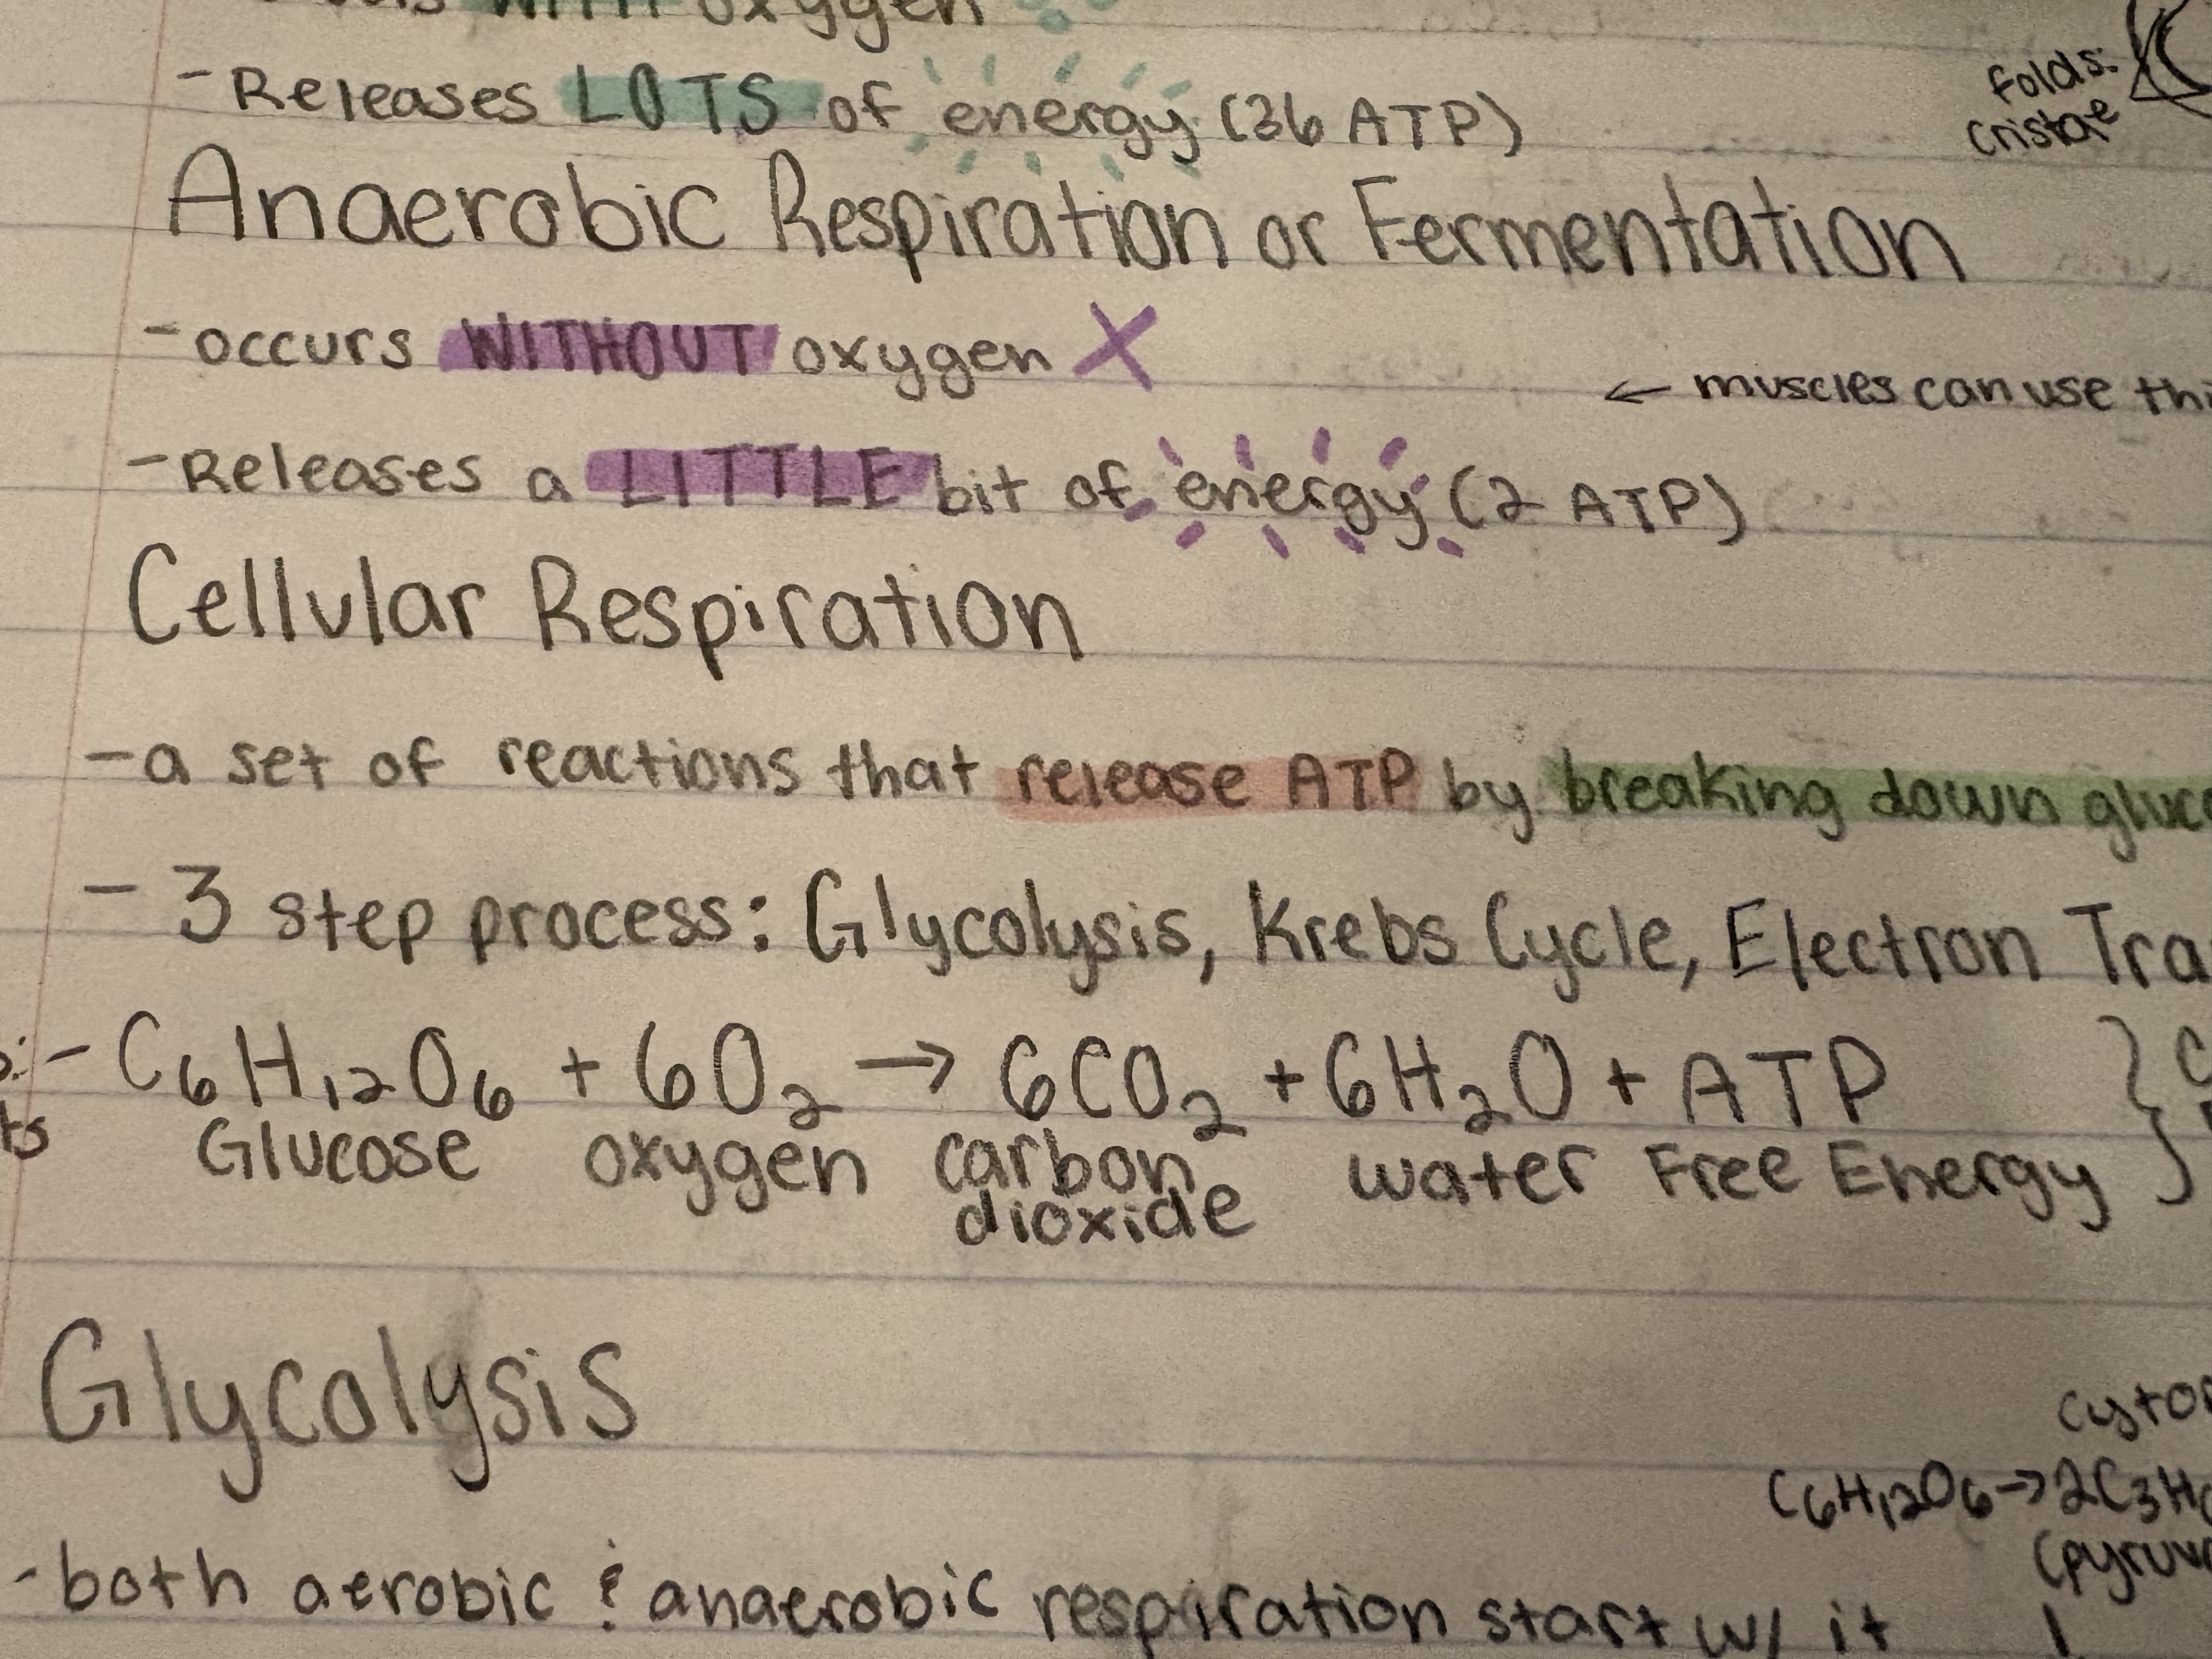 WITH oxygen
-Releases LOTS of energy (36 ATP)
folds:
cristae
Anaerobic Respiration or Fermentation
-occurs WITHOUT oxygen X
← muscles can use
-Releases a LITTLE bit of energy (2 ATP)
Cellular Respiration
-a set of reactions that release ATP by breaking down
- 3 step process: Glycolysis, Krebs Cycle, Electron
- C₆H₁₂O₆ + 6O₂ → 6CO₂ + 6H₂O + ATP }
Glucose oxygen carbon dioxide water Free Energy
Glycolysis
C₆H₁₂O₆→2C₃H
-both aerobic & anaerobic respiration start w/ it